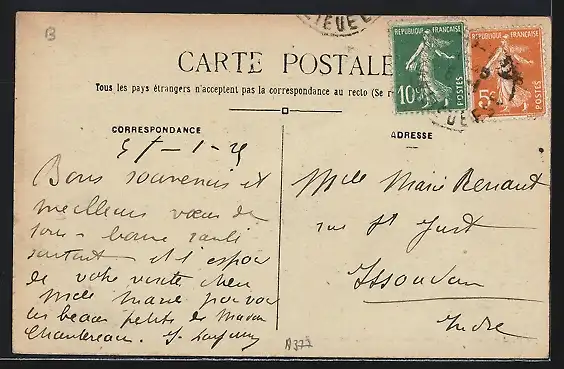 B
CARTE POSTALE
Tous les pays étrangers n'acceptent pas la correspondance au recto (Se r
RÉPUBLIQUE FRANÇAISE
10c
POSTES
RÉPUBLIQUE FRANÇAISE
5c
POSTES
CORRESPONDANCE
ADRESSE
1 - 25
Bons souvenirs et
meilleurs vœux de
tous - bonne santé
surtout et l'espoir
de votre visite chez
Melle Marie pour voir
les beaux petits de Maron
Chantereau.
Melle Marie Renault
rue St Just
Issoudun
Indre